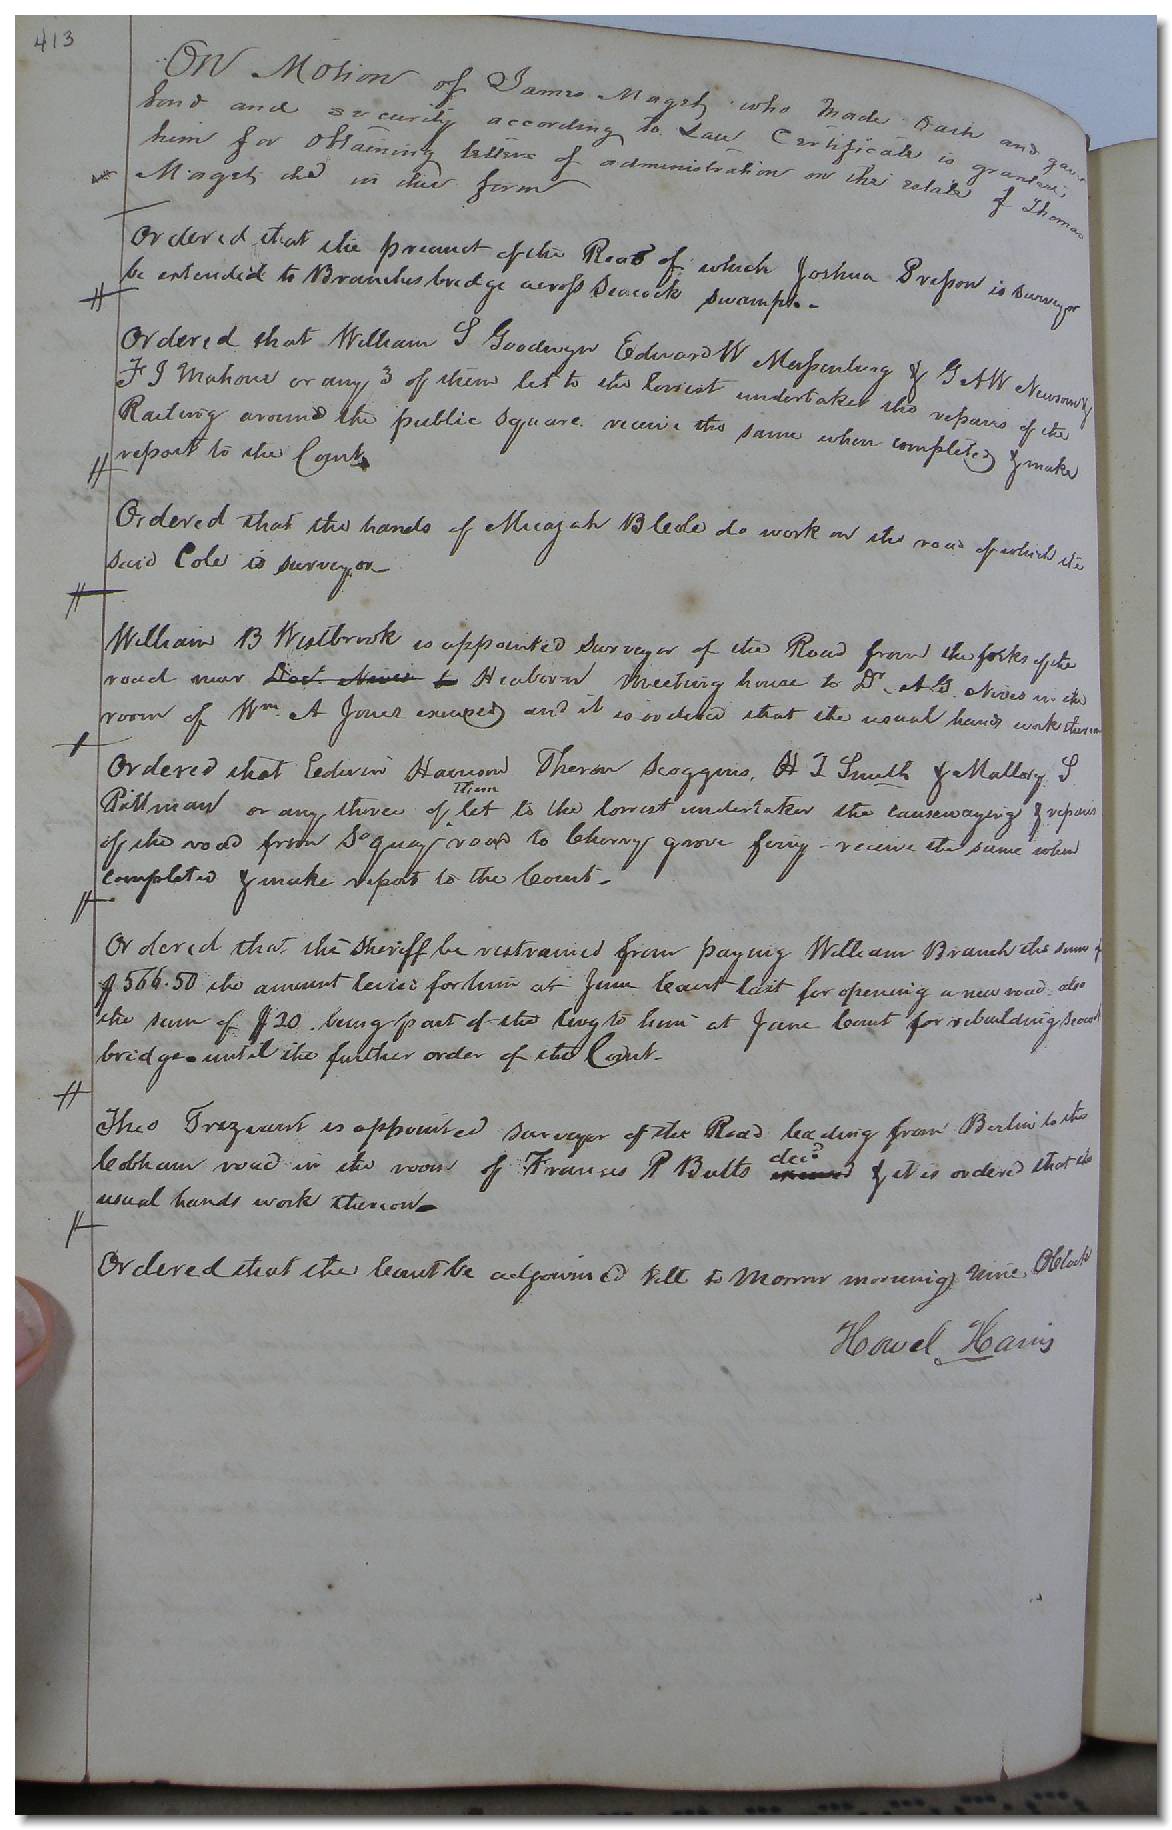 413
On Motion of James Magety who made Oath and gave
bond and security according to Law Certificate is granted
him for obtaining letters of administration on the estate of Thomas
Magety decd in due form
Ordered that the precinct of the Road of which Joshua Presson is surveyor
be extended to Branches bridge across Seacock swamp.
Ordered that William S Goodwyn Edward W Massenburg & G A W Newsom &
F J Mahone or any 3 of them let to the lowest undertaker the repairs of the
Railing around the public square receive the same when completed & make
report to the Court
Ordered that the hands of Micajah B Cole do work on the road of which the
said Cole is surveyor
William B Westbrook is appointed surveyor of the Road from the forks of the
road near Doct. Nives to Heaborn Meeting house to Dr. A G. Nives in the
room of Wm. A Jones excused and it is ordered that the usual hands work thereon
Ordered that Edwin Harrison Theron Scoggins, H T Smith & Mallory S
Pittman or any three of them let to the lowest undertaker the causewaying & repairs
of the road from So quay road to Cherry grove ferry - receive the same when
completed & make report to the Court -
Ordered that the Sheriff be restrained from paying William Branch the sum of
$566.50 the amount levied for him at June Court last for opening a new road also
the sum of $20. being part of the levy to him at June Court for rebuilding Seacock
bridge until the further order of the Court -
Theo Trezvant is appointed surveyor of the Road leading from Berlin to the
Cobham road in the room of Francis P Butts decd & it is ordered that the
usual hands work thereon
Ordered that the Court be adjourned till to Morrow morning Nine OClock
Howel Harris